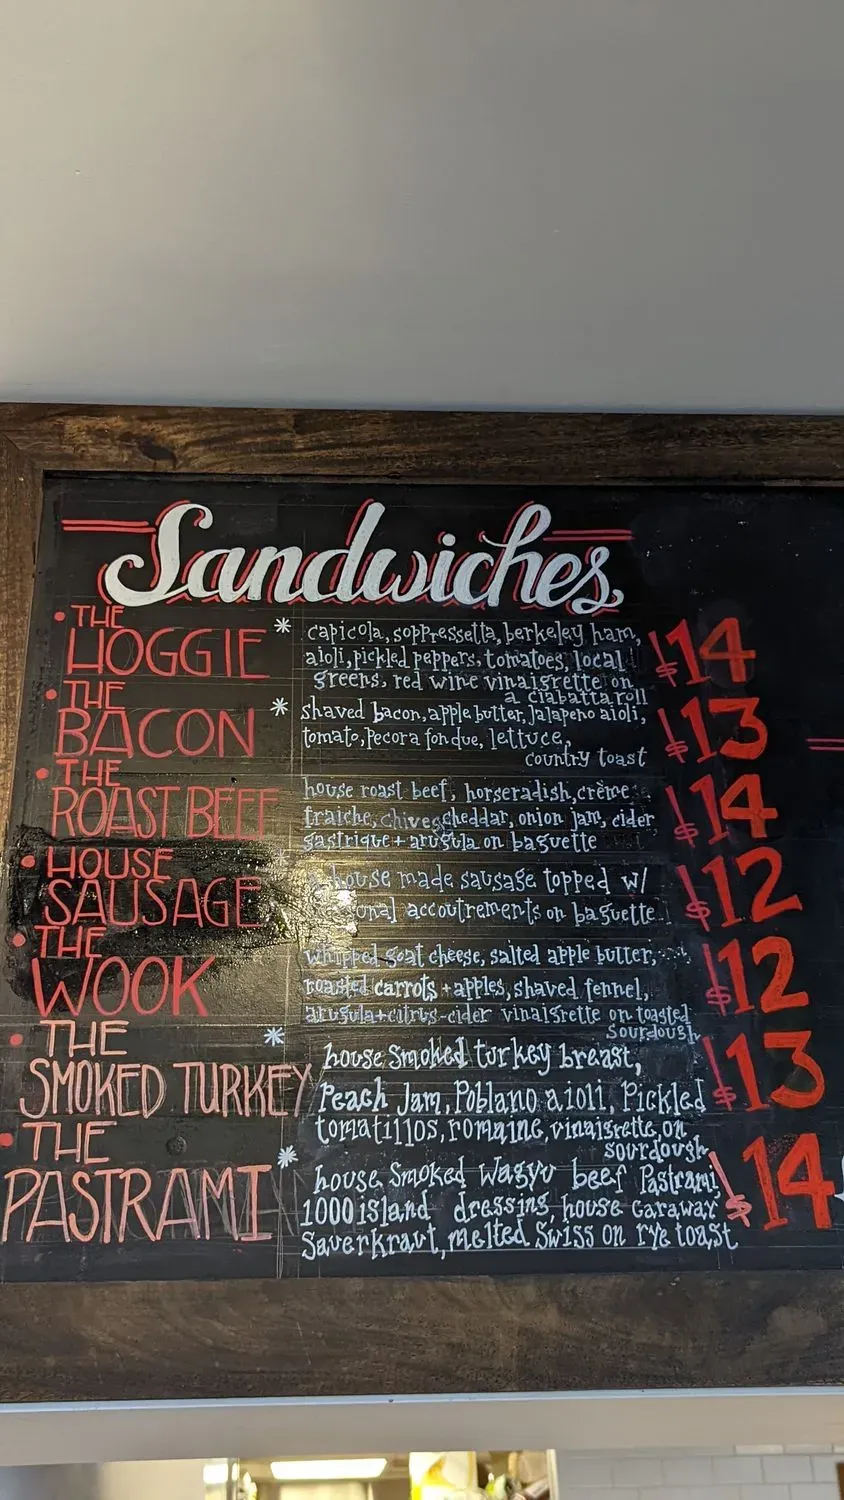 Sandwiches
• THE
HOGGIE *
capicola, soppressetta, berkeley ham,
aioli, pickled peppers, tomatoes, local
greens, red wine vinaigrette on
a ciabatta roll
$14
• THE
BACON *
shaved bacon, apple butter, Jalapeno aioli,
tomato, Pecora fondue, lettuce,
country toast
$13
• THE
ROAST BEEF
house roast beef, horseradish, crème
fraiche, chive cheddar, onion jam, cider
gastrique + arugula on baguette
$14
• HOUSE
SAUSAGE *
a house made sausage topped w/
accoutrements on baguette
$12
• THE
WOOK
whipped goat cheese, salted apple butter,
roasted carrots + apples, shaved fennel,
arugula + citrus-cider vinaigrette on toasted
sourdough
$12
• THE
SMOKED TURKEY *
house smoked turkey breast,
Peach Jam, Poblano aioli, Pickled
tomatillos, romaine, vinaigrette, on
sourdough
$13
• THE
PASTRAMI *
house smoked Wagyu beef Pastrami,
1000 island dressing, house caraway
Sauerkraut, melted Swiss on rye toast
$14